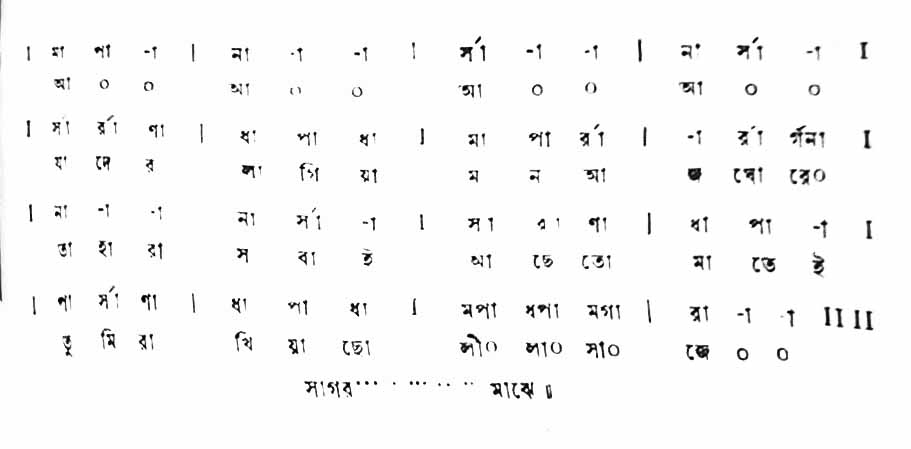 I মা পা -া | না -া -া I র্সা -া -া | না র্সা -া I
আ ০ ০ আ ০ ০ আ ০ ০ আ ০ ০
I র্সা র্রা ণা | ধা পা ধা I মা পা র্রা | -া র্রা র্গনা I
যা দে র লা গি য়া ম ন আ জ ঘো রে০
| না -া -া না র্সা -া I সা রা ণা | ধা পা -া I
তা হা রা স বা ই আ ছে তো মা তে ই
| ণা র্সা ণা | ধা পা ধা I মপা ধপা মগা | রা -া -া II II
তু মি রা খি য়া ছো লী০ লা০ সা০ জে ০ ০
সাগর... . ... .. .. মাঝে ॥